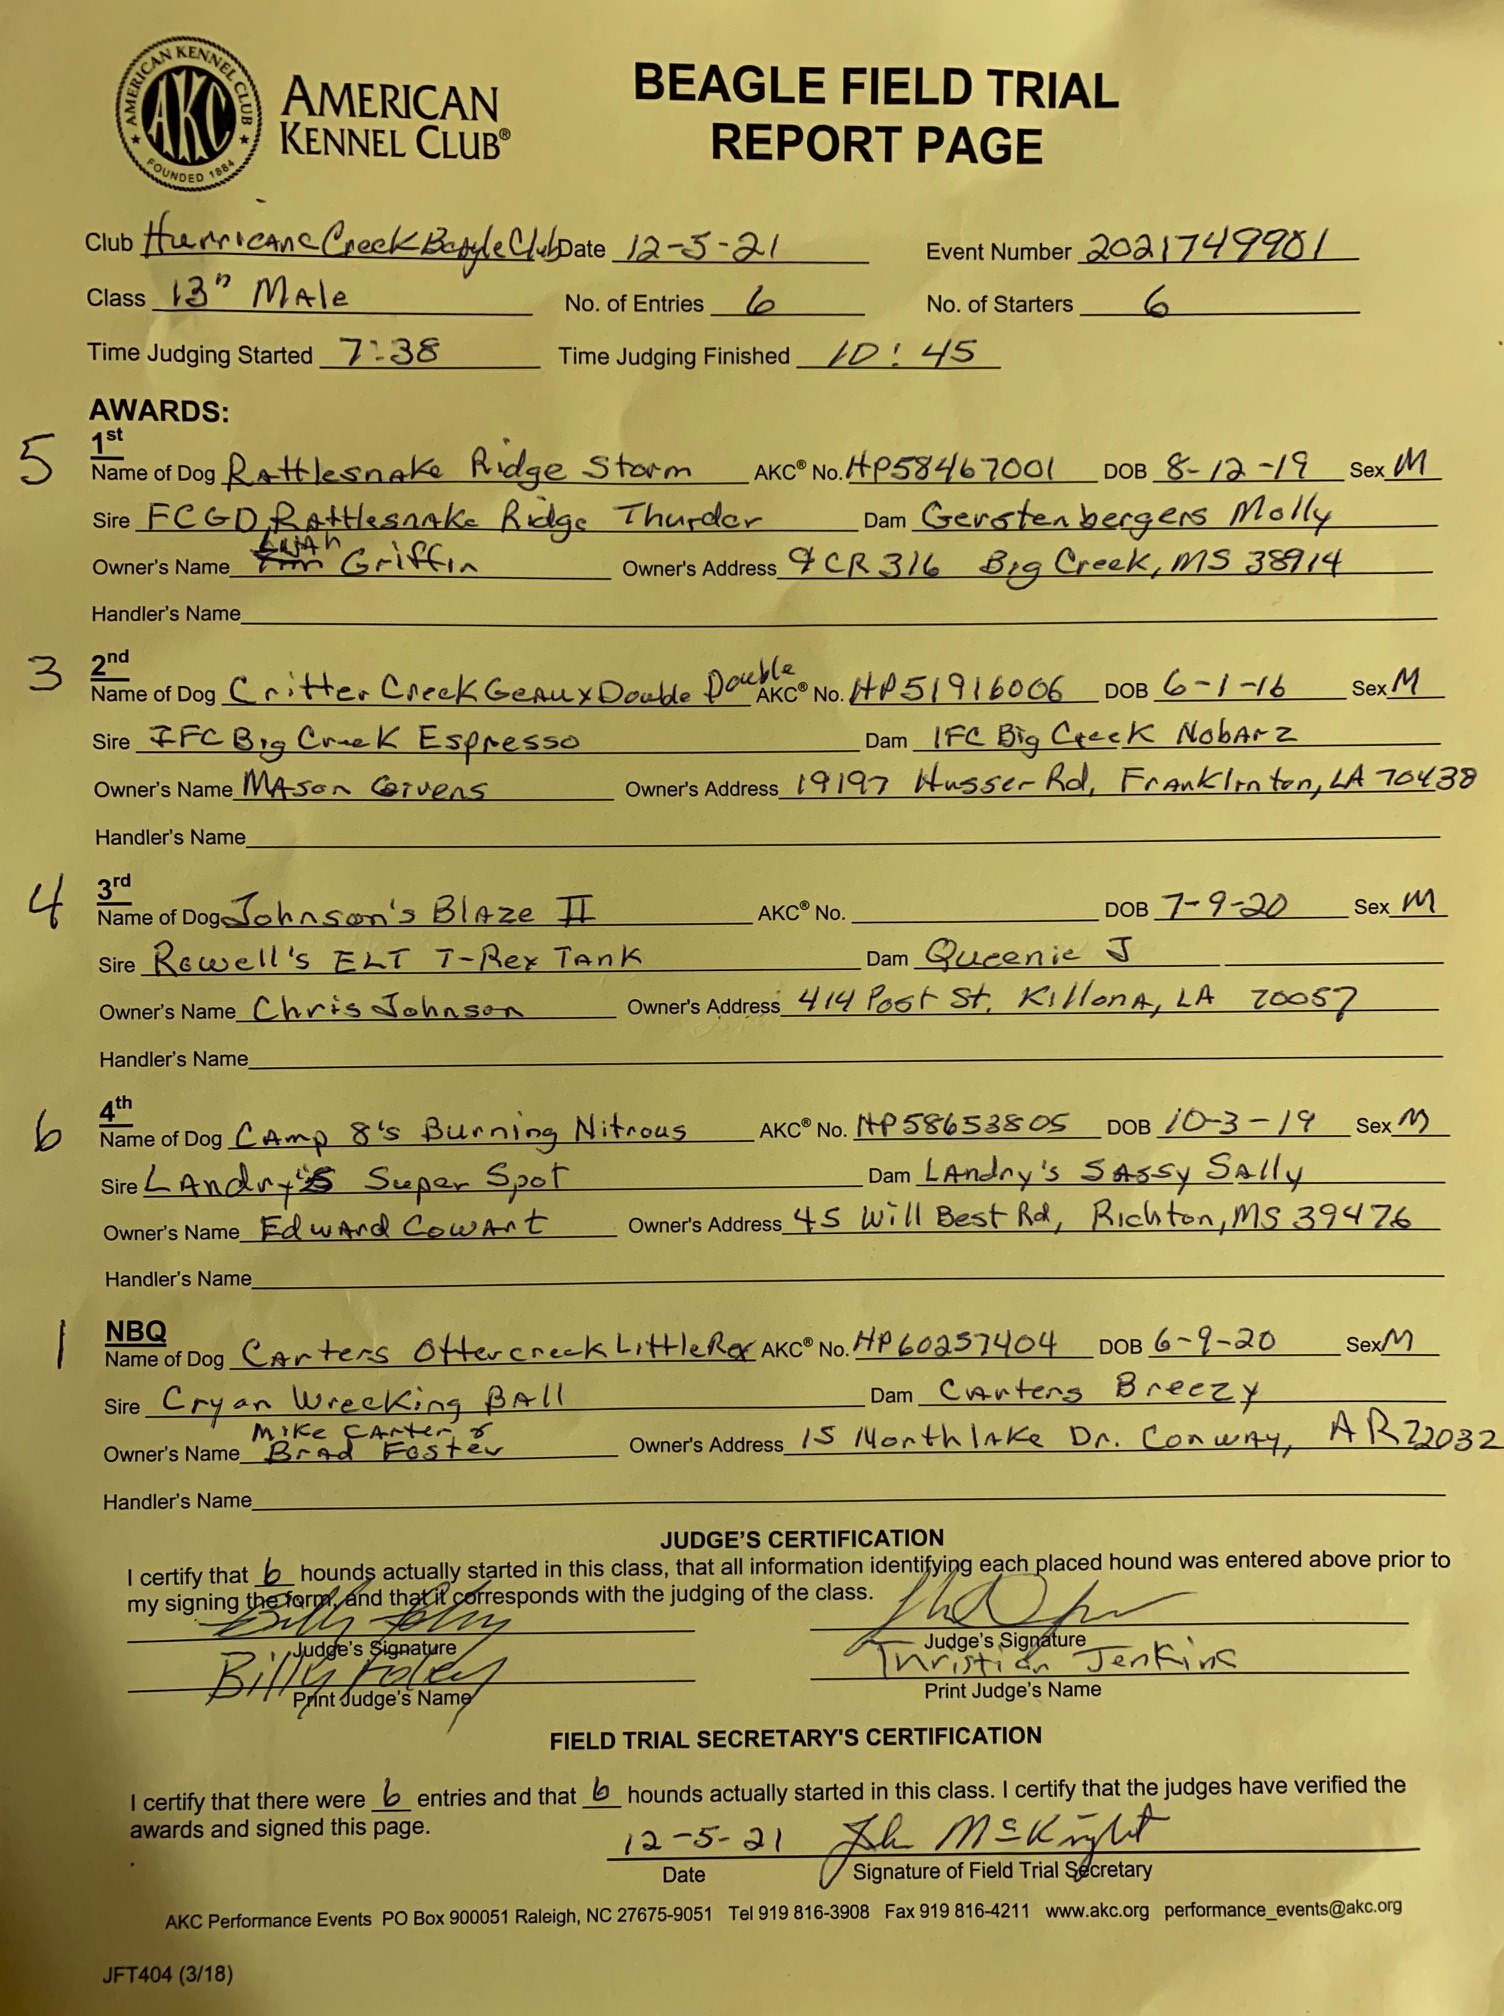 AMERICAN KENNEL CLUB
AKC
FOUNDED 1884
AMERICAN
KENNEL CLUB®
BEAGLE FIELD TRIAL
REPORT PAGE
Club Hurricane Creek Beagle Club Date 12-5-21 Event Number 2021749901
Class 13" Male No. of Entries 6 No. of Starters 6
Time Judging Started 7:38 Time Judging Finished 10:45
AWARDS:
5 1st
Name of Dog Rattlesnake Ridge Storm AKC® No. HP58467001 DOB 8-12-19 Sex M
Sire FCGD Rattlesnake Ridge Thunder Dam Gerstenbergers Molly
Owner's Name Griffin Owner's Address 9 CR 316 Big Creek, MS 38914
Handler's Name
3 2nd
Name of Dog Critter Creek Geaux Double Double AKC® No. HP51916006 DOB 6-1-16 Sex M
Sire IFC Big Creek Espresso Dam IFC Big Creek Nobarz
Owner's Name Mason Givens Owner's Address 19197 Husser Rd, Franklinton, LA 70438
Handler's Name
4 3rd
Name of Dog Johnson's Blaze II AKC® No. DOB 7-9-20 Sex M
Sire Rowell's ELT T-Rex Tank Dam Queenie J
Owner's Name Chris Johnson Owner's Address 414 Post St. Killona, LA 70057
Handler's Name
6 4th
Name of Dog Camp 8's Burning Nitrous AKC® No. HP58653805 DOB 10-3-19 Sex M
Sire Landry's Super Spot Dam Landry's Sassy Sally
Owner's Name Edward Cowart Owner's Address 45 Will Best Rd, Richton, MS 39476
Handler's Name
1 NBQ
Name of Dog Carters Ottercreek Little Rex AKC® No. HP60257404 DOB 6-9-20 Sex M
Sire Cryan Wrecking Ball Dam Carters Breezy
Mike Carter &
Owner's Name Brad Foster Owner's Address 15 Northlake Dr. Conway, AR 72032
Handler's Name
JUDGE'S CERTIFICATION
I certify that 6 hounds actually started in this class, that all information identifying each placed hound was entered above prior to
my signing the form, and that it corresponds with the judging of the class.
Billy Foley
Judge's Signature Judge's Signature
Billy Foley Jenkins
Print Judge's Name Print Judge's Name
FIELD TRIAL SECRETARY'S CERTIFICATION
I certify that there were 6 entries and that 6 hounds actually started in this class. I certify that the judges have verified the
awards and signed this page.
12-5-21 John McKnight
Date Signature of Field Trial Secretary
AKC Performance Events PO Box 900051 Raleigh, NC 27675-9051 Tel 919 816-3908 Fax 919 816-4211 www.akc.org performance_events@akc.org
JFT404 (3/18)